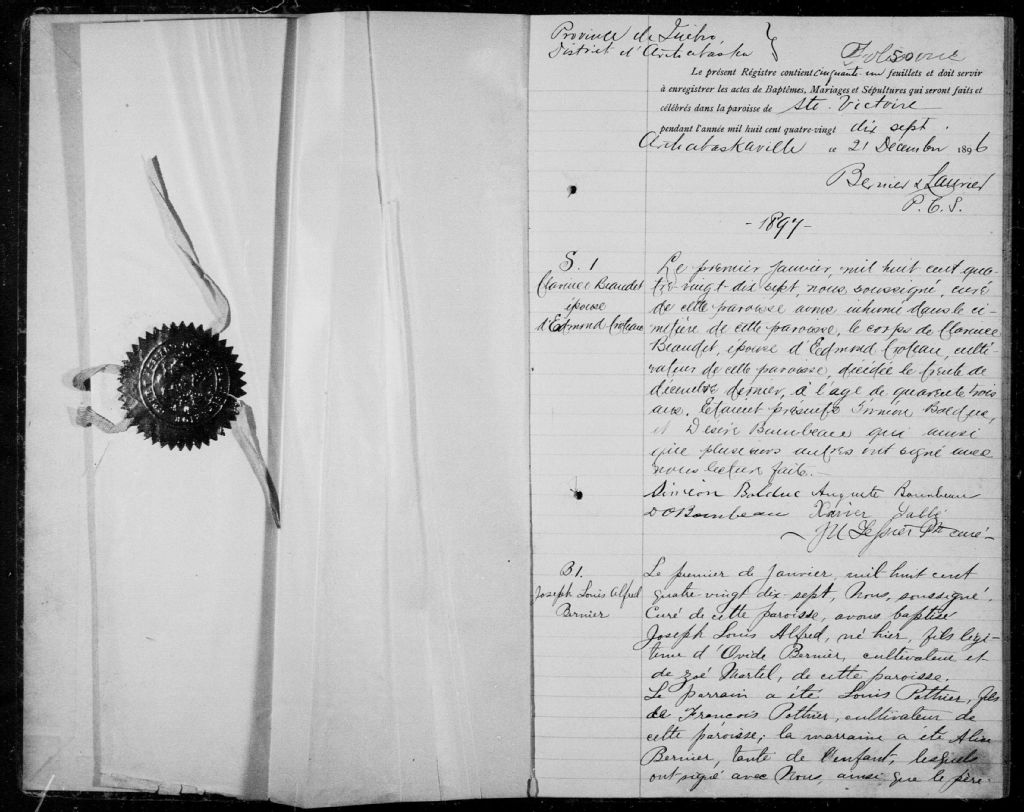 Province de Québec,
District d'Arthabaska
Le présent Régistre contient cinquante un feuillets et doit servir
à enregistrer les actes de Baptêmes, Mariages et Sépultures qui seront faits et
célébrés dans la paroisse de Ste. Victoire
pendant l'année mil huit cent quatre-vingt dix sept.
Arthabaskaville ce 21 Décembre 1896
Bernier & Laurier
P. C. S.
-1897-
S. 1
Clarence Beaudet
épouse
d'Edmond Croteau
Le premier janvier, mil huit cent qua-
tre-vingt dix sept, nous soussigné, curé
de cette paroisse avons inhumé dans le ci-
metière de cette paroisse, le corps de Clarence
Beaudet, épouse d'Edmond Croteau, culti-
vateur de cette paroisse, décédée le trente de
décembre dernier, à l'age de quarante trois
ans. Etaient présents Siméon Bolduc,
et Désiré Bourbeau qui ainsi
que plusieurs autres ont signé avec
nous lecture faite.
Siméon Bolduc Auguste Bourbeau
D O Bourbeau Xavier Labbé
Ptre curé
B 1.
Joseph Louis Alfred
Bernier
Le premier de Janvier, mil huit cent
quatre-vingt dix-sept, Nous, soussigné,
Curé de cette paroisse, avons baptisé
Joseph Louis Alfred, né hier, fils légi-
time d'Ovide Bernier, cultivateur et
de Zoé Martel, de cette paroisse.
Le parrain a été Louis Pothier, fils
de François Pothier, cultivateur de
cette paroisse; la marraine a été Alice
Bernier, tante de l'enfant, lesquels
ont signé avec Nous, ainsi que le père.